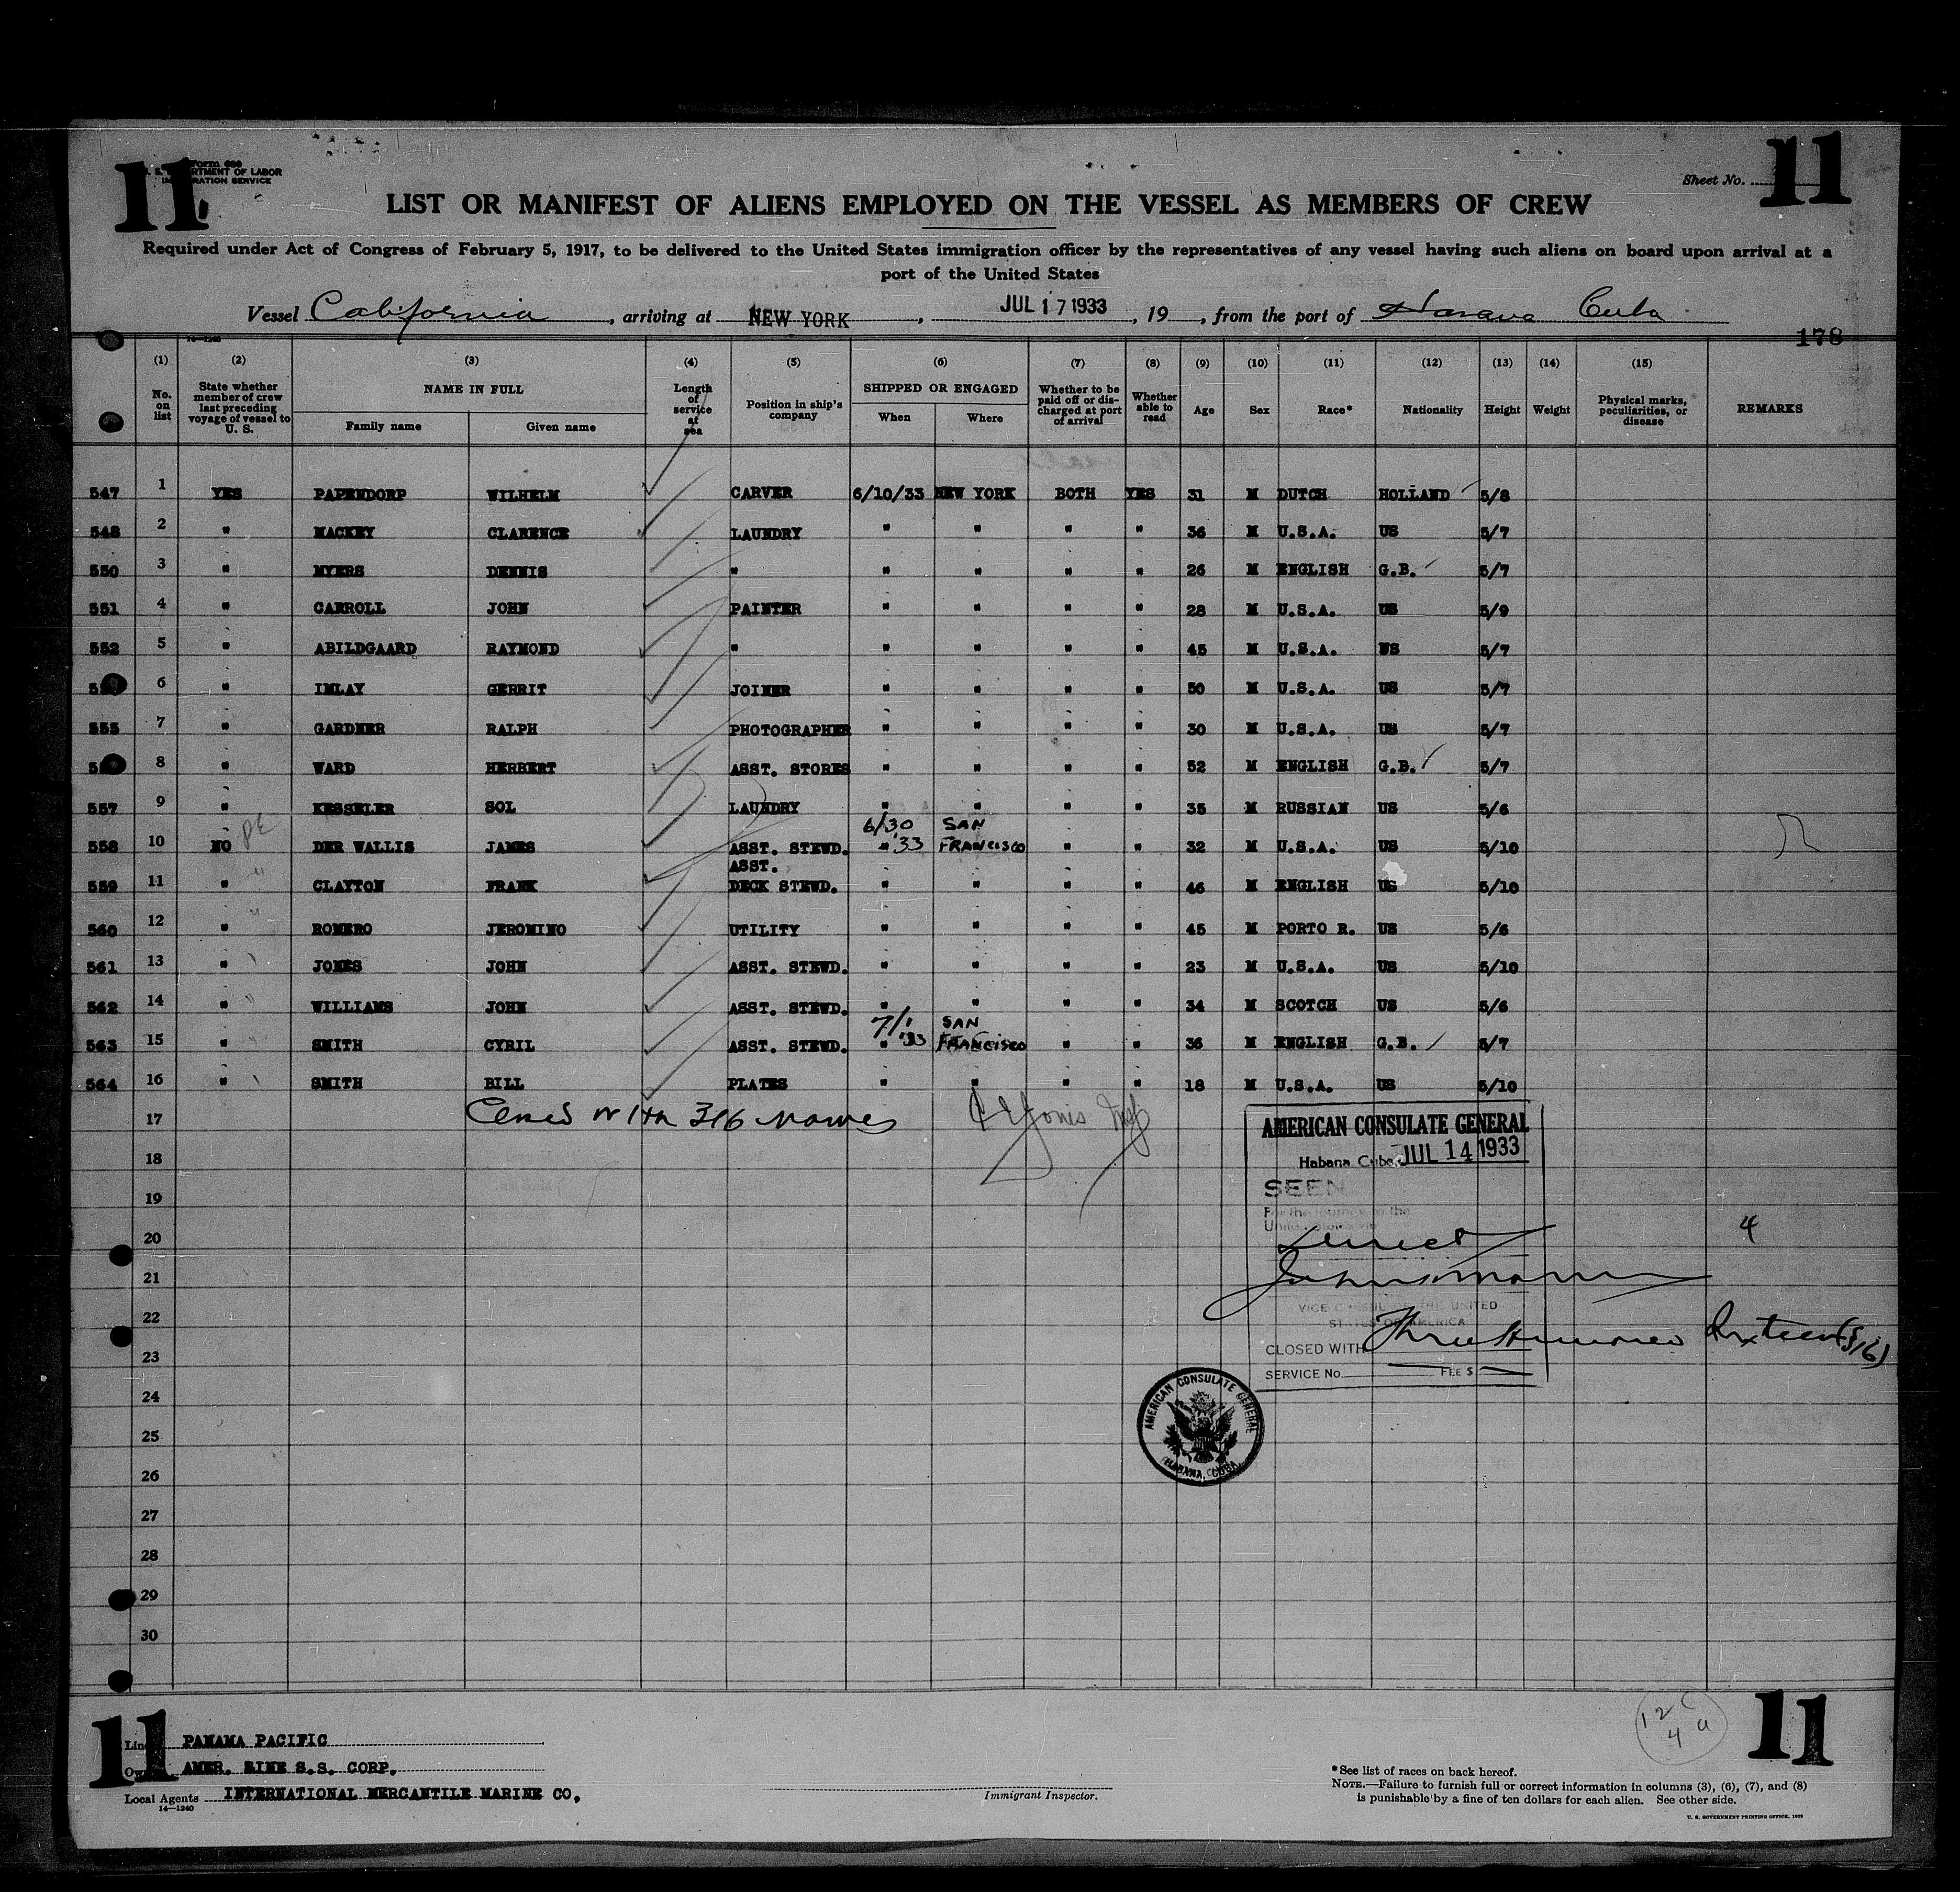 11 Form 680
U. S. DEPARTMENT OF LABOR
IMMIGRATION SERVICE
Sheet No. 11
LIST OR MANIFEST OF ALIENS EMPLOYED ON THE VESSEL AS MEMBERS OF CREW
Required under Act of Congress of February 5, 1917, to be delivered to the United States immigration officer by the representatives of any vessel having such aliens on board upon arrival at a
port of the United States
Vessel California, arriving at NEW YORK, JUL 17 1933, 19, from the port of Havana Cuba
178
14—1240
(1) (2) (3) (4) (5) (6) (7) (8) (9) (10) (11) (12) (13) (14) (15)
No. on list State whether member of crew last preceding voyage of vessel to U. S. NAME IN FULL Family name Given name Length of service at sea Position in ship's company SHIPPED OR ENGAGED When Where Whether to be paid off or discharged at port of arrival Whether able to read Age Sex Race* Nationality Height Weight Physical marks, peculiarities, or disease REMARKS
547 1 YES PAPENDORP WILHELM CARVER 6/10/33 NEW YORK BOTH YES 31 M DUTCH HOLLAND 5/8
548 2 " MACKEY CLARENCE LAUNDRY " " " " 36 M U.S.A. US 5/7
550 3 " MYERS DENNIS " " " " " 26 M ENGLISH G.B. 5/7
551 4 " CARROLL JOHN PAINTER " " " " 28 M U.S.A. US 5/9
552 5 " ABILDGAARD RAYMOND " " " " " 45 M U.S.A. US 5/7
6 " IMLAY GERRIT JOINER " " " " 50 M U.S.A. US 5/7
555 7 " GARDNER RALPH PHOTOGRAPHER " " " " 30 M U.S.A. US 5/7
8 " WARD HERBERT ASST. STORES " " " " 52 M ENGLISH G.B. 5/7
557 9 " KESSELER SOL LAUNDRY " " " " 35 M RUSSIAN US 5/6
558 10 NO DER WALLIS JAMES ASST. STEWD. 6/30 '33 SAN FRANCISCO " " 32 M U.S.A. US 5/10
559 11 " CLAYTON FRANK ASST. DECK STEWD. " " " " 46 M ENGLISH US 5/10
560 12 " ROMERO JEROMINO UTILITY " " " " 45 M PORTO R. US 5/6
561 13 " JONES JOHN ASST. STEWD. " " " " 23 M U.S.A. US 5/10
562 14 " WILLIAMS JOHN ASST. STEWD. " " " " 34 M SCOTCH US 5/6
563 15 " SMITH CYRIL ASST. STEWD. 7/1 '33 SAN FRANCISCO " " 36 M ENGLISH G.B. 5/7
564 16 " SMITH BILL PLATES " " " " 18 M U.S.A. US 5/10
17 with 316 names
18
19
20
21
22
23
24
25
26
27
28
29
30
AMERICAN CONSULATE GENERAL
Habana, Cuba JUL 14 1933
SEEN
For the journey to the
United States via
Direct
4
VICE CONSUL OF THE UNITED
STATES OF AMERICA
CLOSED WITH Three Hundred Sixteen (316)
SERVICE No. FEE $
AMERICAN CONSULATE GENERAL
HABANA, CUBA
11
Line PANAMA PACIFIC
Owners AMER. LINE S.S. CORP.
Local Agents INTERNATIONAL MERCANTILE MARINE CO.
14—1240
Immigrant Inspector.
12 C
4 a
11
*See list of races on back hereof.
NOTE.—Failure to furnish full or correct information in columns (3), (6), (7), and (8)
is punishable by a fine of ten dollars for each alien. See other side.
U. S. GOVERNMENT PRINTING OFFICE